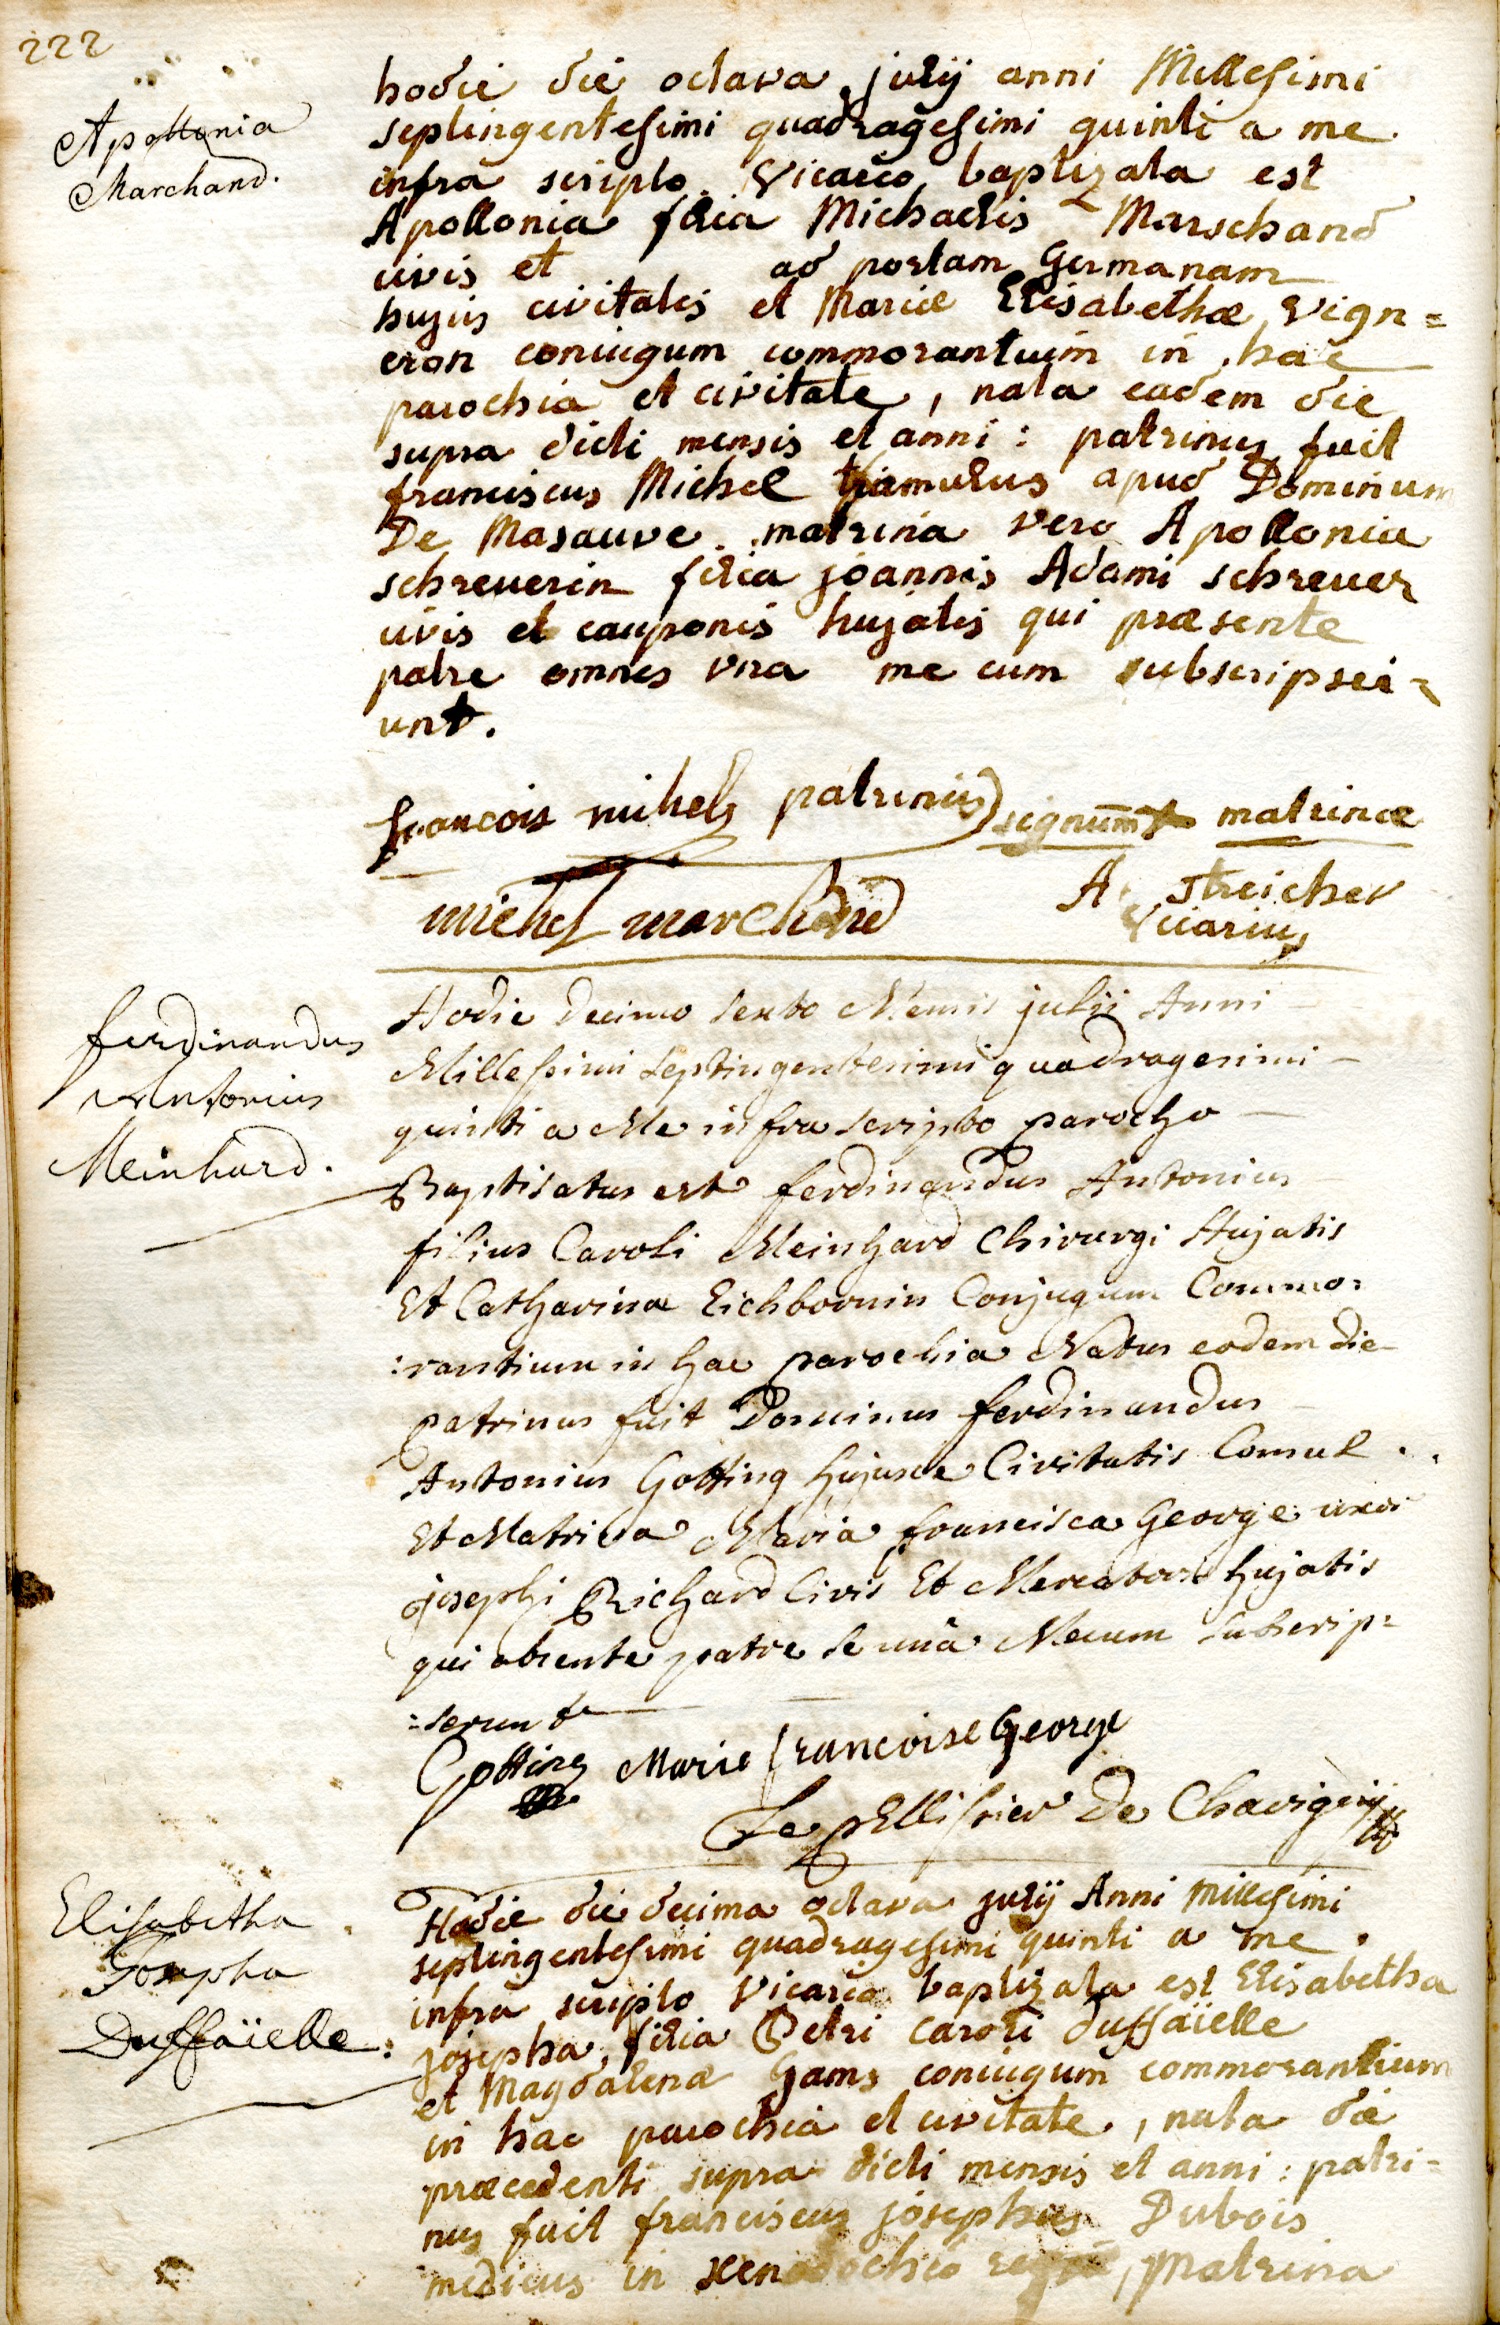 222
Apollonia
Marchand.
hodie die octava julij anni Millesimi
septingentesimi quadragesimi quinti a me
infra scripto Vicario baptizata est
Apollonia filia Michaelis Marschand
civis et ad portam Germanam
hujus civitatis et Mariæ Elisabethæ Vign=
eron coniugum commorantium in hac
parochia et civitate, nata eadem die
supra dicti mensis et anni: patrinus fuit
franciscus Michel famulus apud Dominum
De Masauve. matrina vero Apollonia
schreuerin filia joannis Adami schreuer
civis et cauponis hujatis qui præsente
patre omnes una me cum subscripser=
unt.
francois mihels patrinus signum matrinæ
michel marchand
A. Streicher
Vicarius
ferdinandus
Antonius
Meinhard.
Hodie Decimo sexto Mensis julij Anni
Millessimi septingentesimi quadragesimi
quinti a Me infra scripto parocho
Baptisatus est ferdinandus Antonius
filius Caroli Meinhard Chirurgi Hujatis
Et Catharinæ Eichbornin Conjugum Commo:
:rantium in hac parochia Natus eodem die
patrinus fuit Dominus ferdinandus
Antonius Gotting hujusce Civitatis Consul
Et Matrina Maria francisca George uxor
josephi Richard Civis Et Mercatoris hujatis
qui absente patre se unà Mecum subscrip=
=serunt
Gotting Marie francoise George
Le pellissier De Chavigny
Elisabetha
Josepha
Duffaïelle:
Hodie die decima octava julij Anni millesimi
septingentesimi quadragesimi quinti a me
infra scripto Vicario baptizata est Elisabetha
josepha, filia Petri Caroli duffaïelle
et Magdalenæ Gams coniugum commorantium
in hac parochia et civitate, nata die
præcedenti supra dicti mensis et anni: patri=
nus fuit franciscus josephus Dubois
medicus in xenodochio regio, Matrina